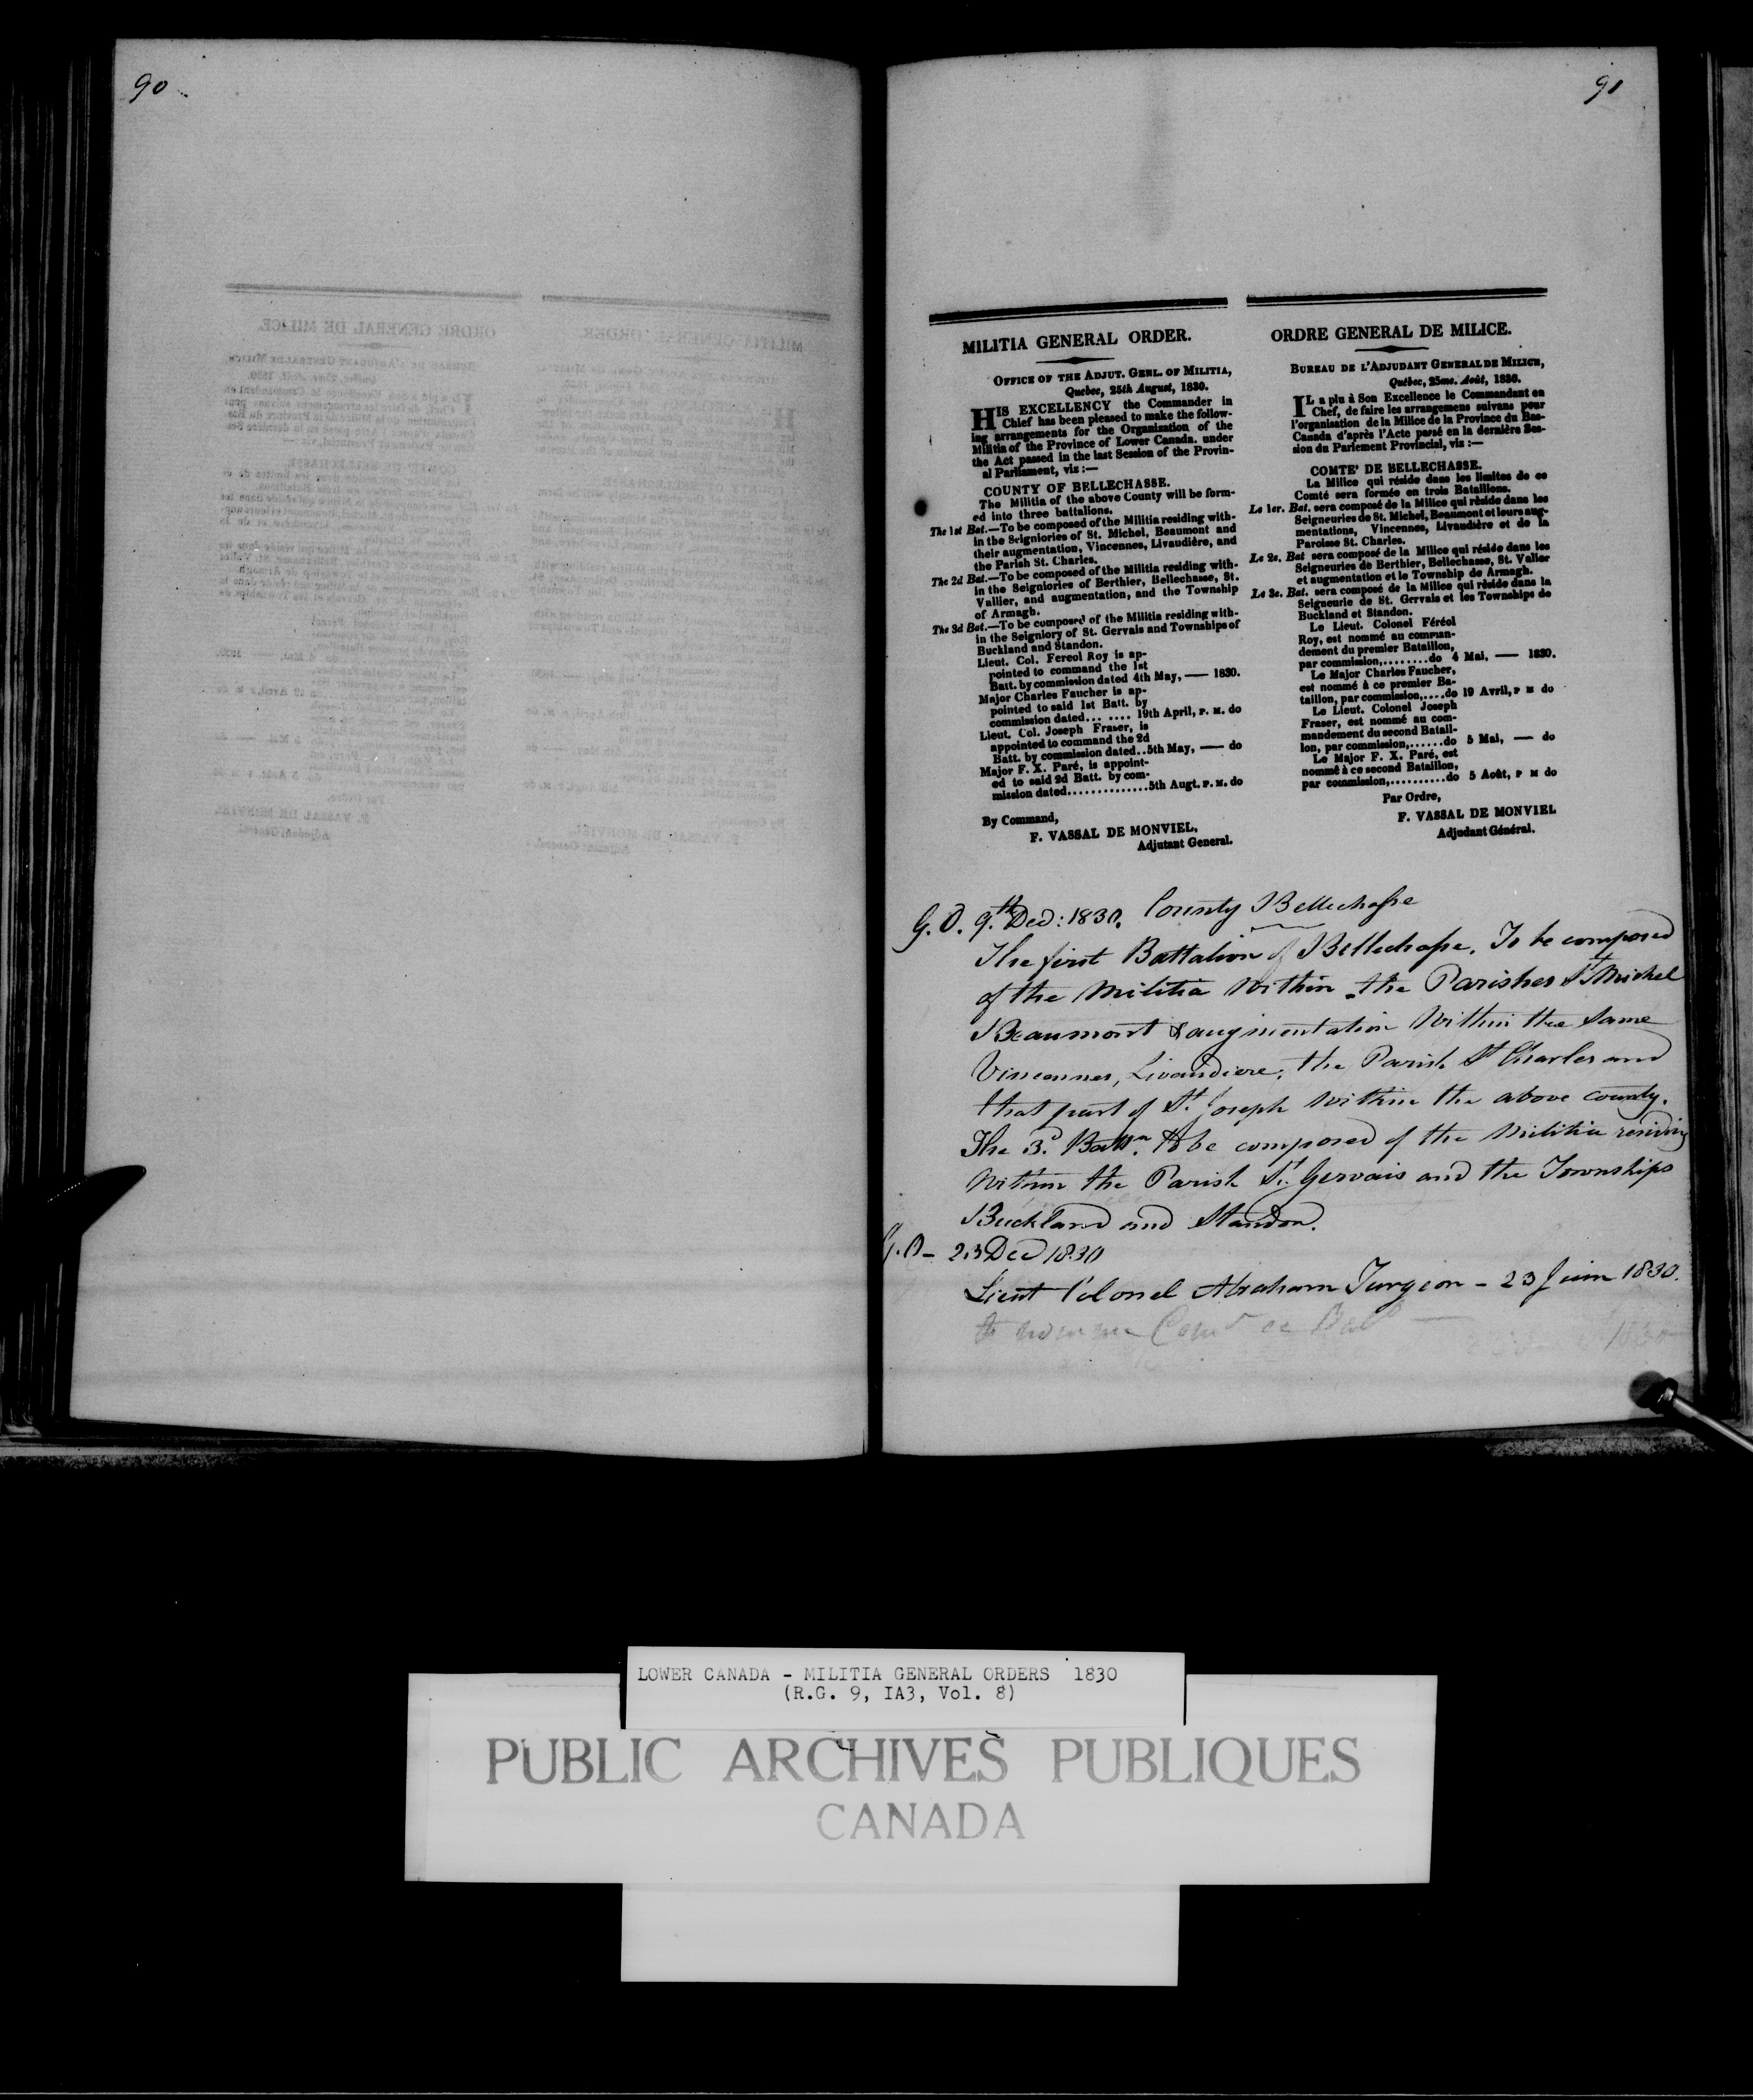 90
91
MILITIA GENERAL ORDER.
OFFICE OF THE ADJUT. GENL. OF MILITIA,
Quebec, 25th August, 1830.
HIS EXCELLENCY the Commander in
Chief has been pleased to make the follow-
ing arrangements for the Organization of the
Militia of the Province of Lower Canada, under
the Act passed in the last Session of the Provin-
al Parliament, viz :—
COUNTY OF BELLECHASSE.
The Militia of the above County will be form-
ed into three battalions.
The 1st Bat.—To be composed of the Militia residing with-
in the Seigniories of St. Michel, Beaumont and
their augmentation, Vincennes, Livaudière, and
the Parish St. Charles.
The 2d Bat.—To be composed of the Militia residing with-
in the Seigniories of Berthier, Bellechasse, St.
Vallier, and augmentation, and the Township
of Armagh.
The 3d Bat.—To be composed of the Militia residing with-
in the Seigniory of St. Gervais and Townships of
Buckland and Standon.
Lieut. Col. Fereol Roy is ap-
pointed to command the 1st
Batt. by commission dated 4th May, —— 1830.
Major Charles Faucher is ap-
pointed to said 1st Batt. by
commission dated... .... 19th April, P. M. do
Lieut. Col. Joseph Fraser, is
appointed to command the 2d
Batt. by commission dated..5th May, —— do
Major F. X. Paré, is appoint-
ed to said 2d Batt. by com-
mission dated..............5th Augt. P. M. do
By Command,
F. VASSAL DE MONVIEL,
Adjutant General.
ORDRE GENERAL DE MILICE.
BUREAU DE L'ADJUDANT GENERAL DE MILICE,
Québec, 25me. Août, 1830.
IL a plu à Son Excellence le Commandant en
Chef, de faire les arrangemens suivans pour
l'organisation de la Milice de la Province du Bas-
Canada d'après l'Acte passé en la dernière Ses-
sion du Parlement Provincial, viz :—
COMTE' DE BELLECHASSE.
La Milice qui réside dans les limites de ce
Comté sera formée en trois Bataillons.
Le 1er. Bat. sera composé de la Milice qui réside dans les
Seigneuries de St. Michel, Beaumont et leurs aug-
mentations, Vincennes, Livaudière et de la
Paroisse St. Charles.
Le 2e. Bat sera composé de la Milice qui réside dans les
Seigneuries de Berthier, Bellechasse, St. Valier
et augmentation et le Township de Armagh.
Le 3e. Bat. sera composé de la Milice qui réside dans la
Seigneurie de St. Gervais et les Townships de
Buckland et Standon.
Le Lieut. Colonel Féréol
Roy, est nommé au comman-
dement du premier Bataillon,
par commission,........do 4 Mai, —— 1830.
Le Major Charles Faucher,
est nommé à ce premier Ba-
taillon, par commission,....do 19 Avril, P M do
Le Lieut. Colonel Joseph
Fraser, est nommé au com-
mandement du second Batail-
lon, par commission,......do 5 Mai, —— do
Le Major F. X. Paré, est
nommé à ce second Bataillon,
par commission,..........do 5 Août, P M do
Par Ordre,
F. VASSAL DE MONVIEL
Adjudant Général.
G. O. 9th Dec: 1830. County Bellechasse
The first Battalion of Bellechasse, To be composed
of the Militia Within the Parishes St Michel
Beaumont & augmentation Within the same
Vincennes, Livaudiere, the Parish St Charles and
that part of St. Joseph within the above county.
The 3d. Battn. to be composed of the Militia residing
Within the Parish St. Gervais and the Townships
Buckland and Standon.
G.O - 23 Dec 1830
Lieut Colonel Abraham Turgeon - 23 Juin 1830.
1830
LOWER CANADA - MILITIA GENERAL ORDERS 1830
(R.G. 9, IA3, Vol. 8)
PUBLIC ARCHIVES PUBLIQUES
CANADA